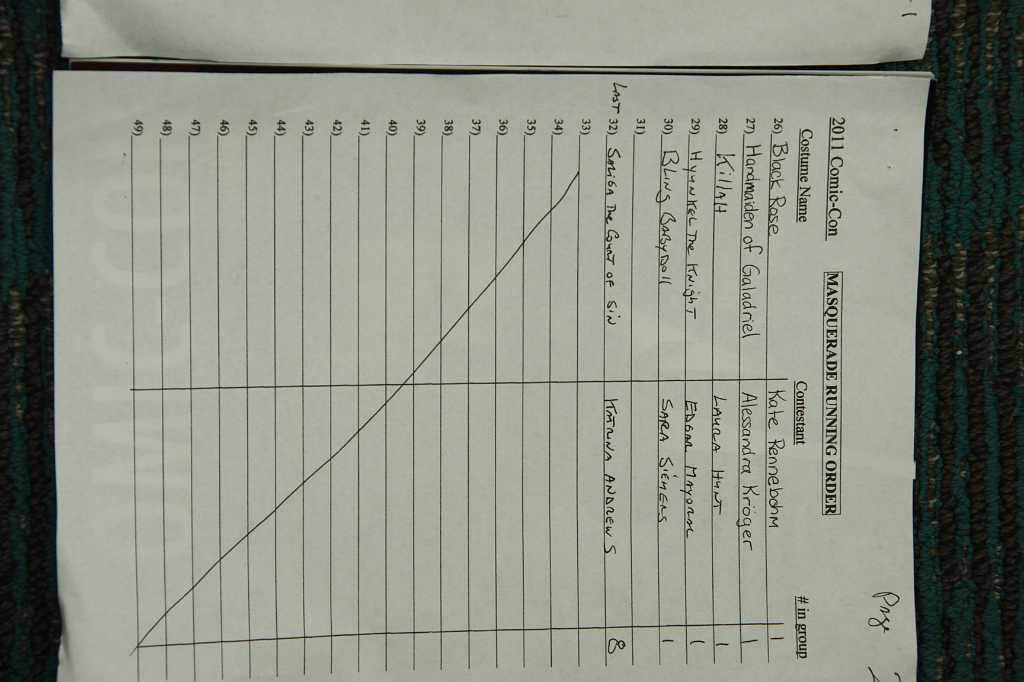 Page 2
2011 Comic-Con MASQUERADE RUNNING ORDER
Costume Name Contestant # in group
26) Black Rose Kate Pennebohm 1
27) Handmaiden of Galadriel Alessandra Kröger 1
28) Killah LAURA HUNT 1
29) HyunKel The Knight EDGAR MAYORAL 1
30) BLING BABYDOLL SARA SIEMERS 1
31)
LAST 32) The Count of Sin KATRINA ANDREWS 8
33)
34)
35)
36)
37)
38)
39)
40)
41)
42)
43)
44)
45)
46)
47)
48)
49)